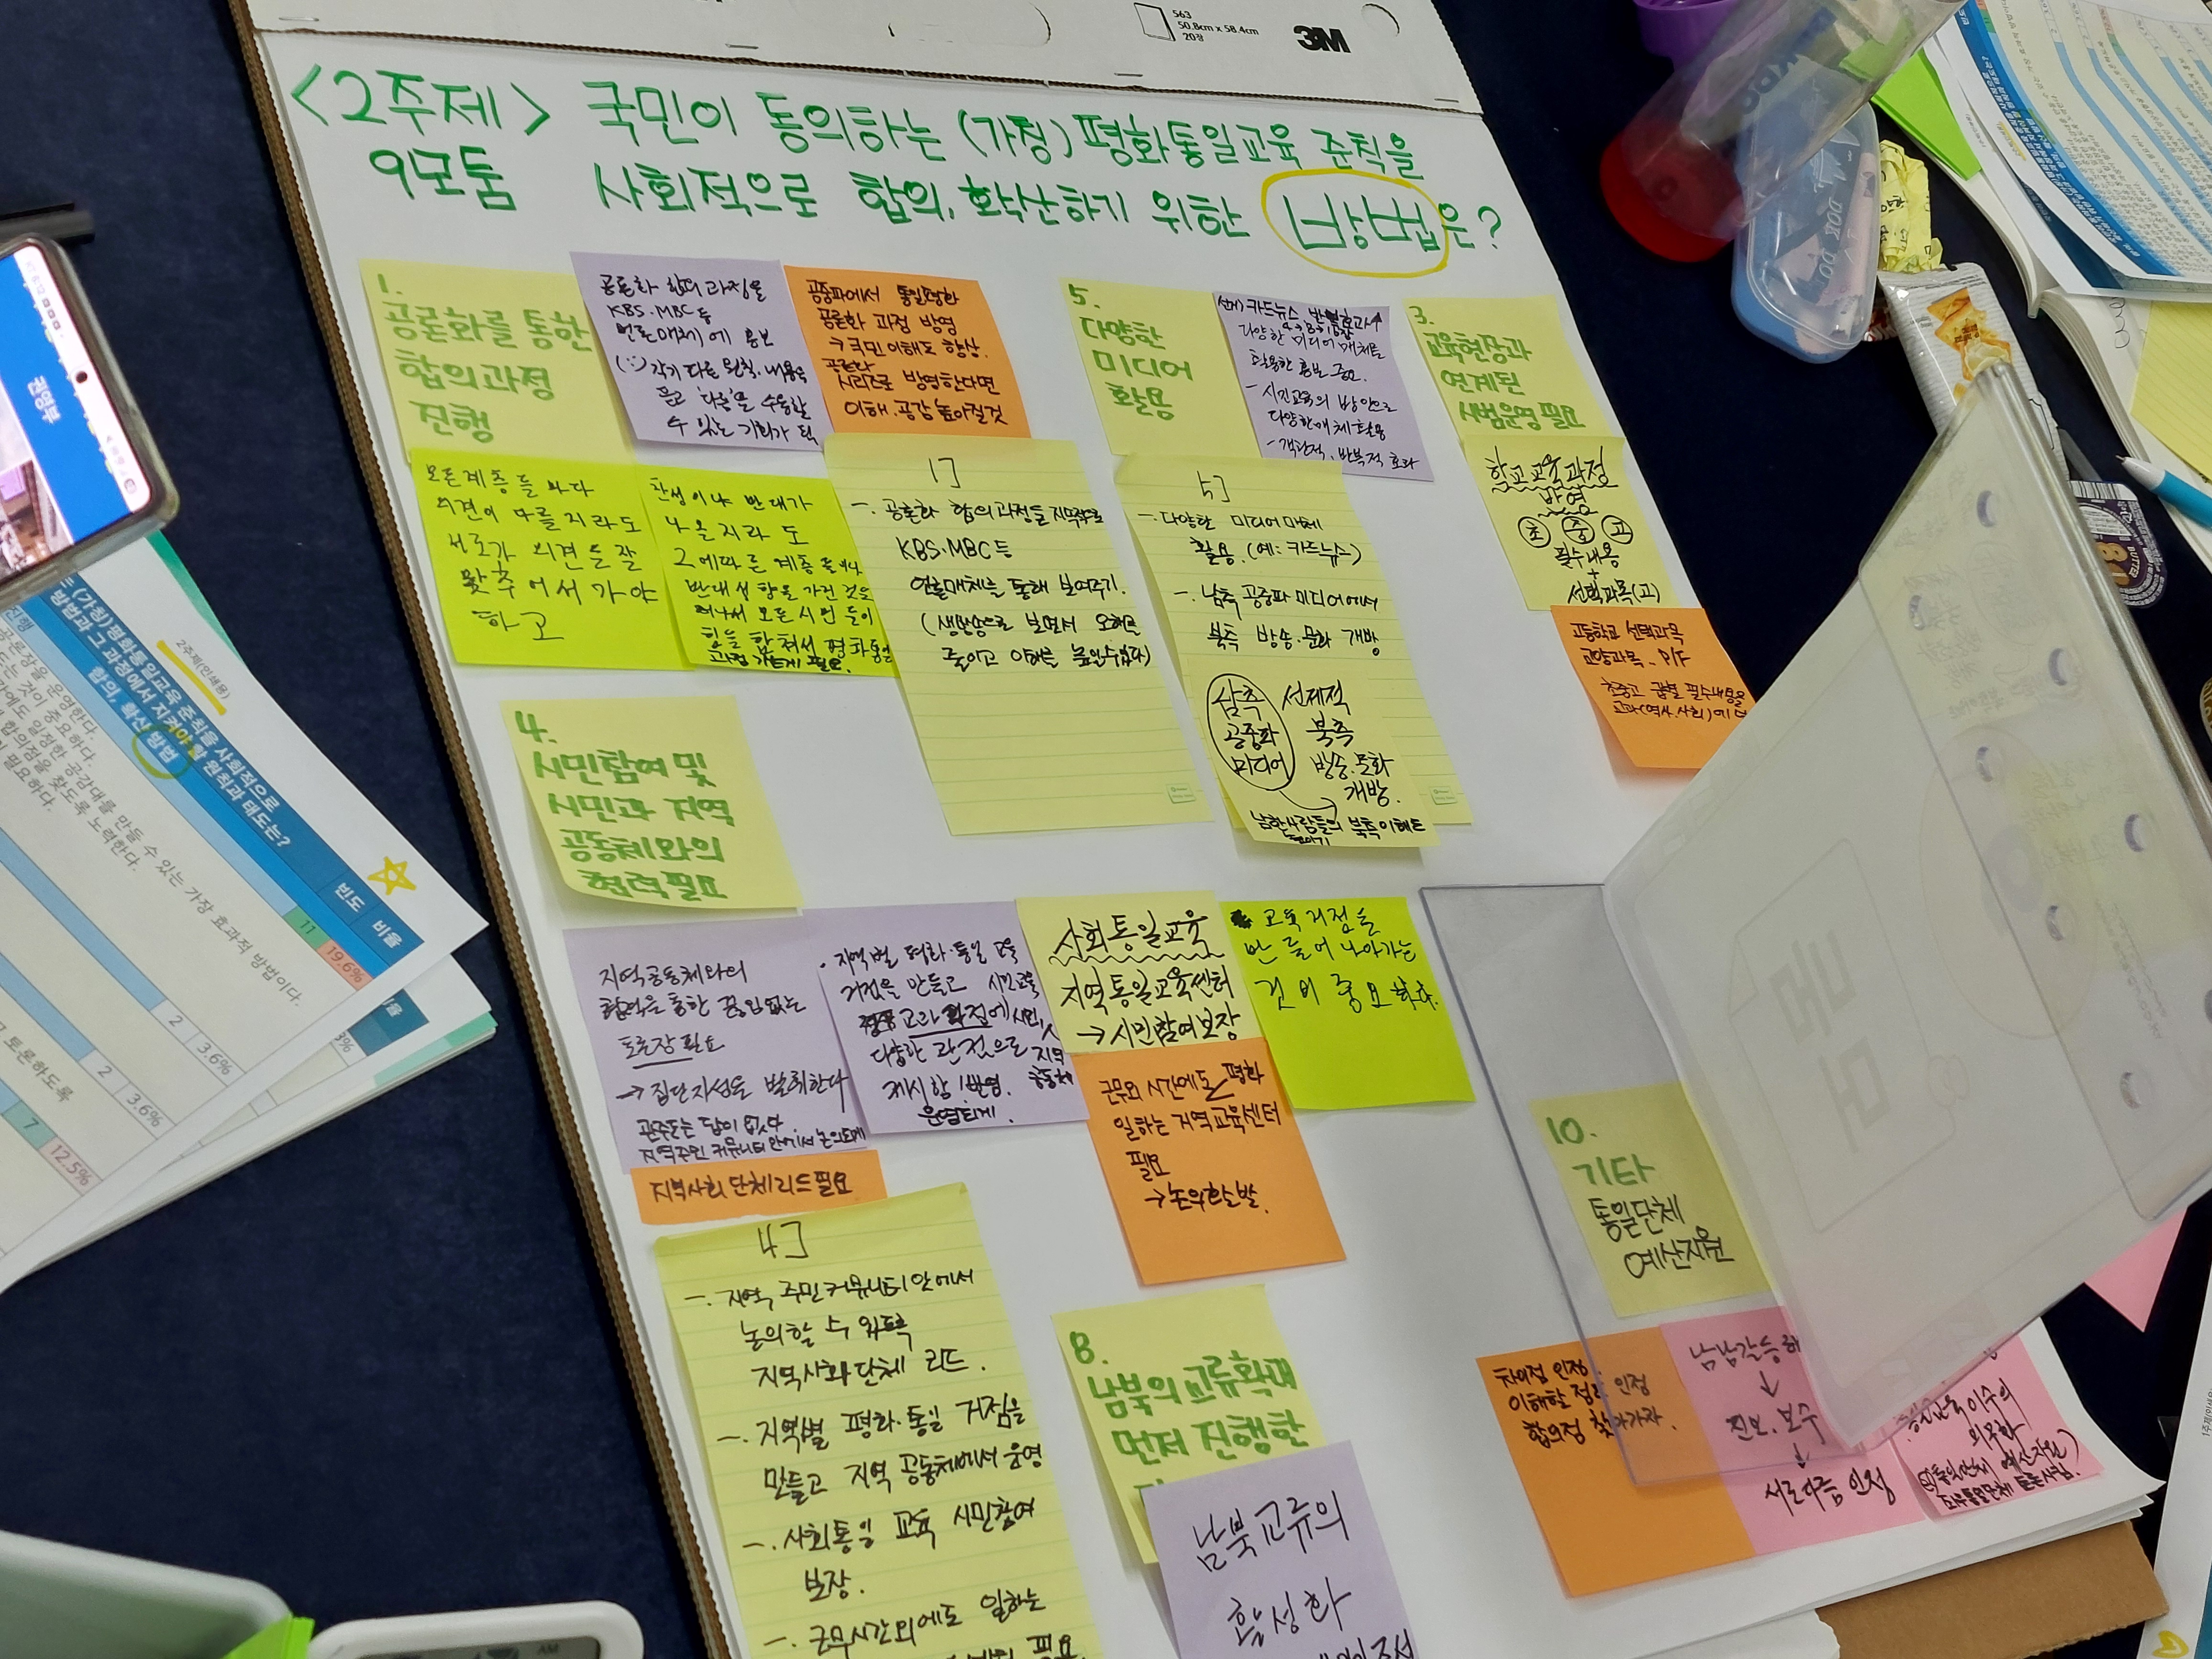 563
50.8cm x 58.4cm
20장
3M
<2주제> 국민이 동의하는 (가칭) 평화통일교육 준칙을
9모둠 사회적으로 합의, 확산하기 위한 방법은?
1.
공론화를 통한
합의과정
진행
공론화 합의 과정을
KBS·MBC 등
언론매체에 홍보
(∵) 각기 다른 원칙·내용을
듣고 '다름'을 수용할
수 있는 기회가 됨
공중파에서 통일평화
공론화 과정 방영
→ 국민 이해도 향상.
공론화
시리즈로 방영한다면
이해·공감 높아질것
모든 계층들 마다
의견이 다를지라도
서로가 의견들 잘
맞추어서 가야
하고
찬성이냐 반대가
나올지라도
그에따른 계층들이나
반대성향을 가진 것을
떠나서 모든 시민들이
힘을 합쳐서 평화통일
과정 가는게 필요.
1]
-. 공론화 합의과정을 지역적으로
KBS·MBC 등
언론매체를 통해 보여주기.
(생방송으로 보면서 오해를
줄이고 이해를 높일수있다)
5.
다양한
미디어
활용
다양한 미디어 매체를
활용한 홍보 중요.
- 시민교육의 방안으로
다양한매체활용
- 객관적, 반복적 효과
5]
-. 다양한 미디어매체
활용. (예: 카드뉴스)
-. 남측 공중파 미디어에서
북측 방송·문화 개방
남측
공중파
미디어
선제적
북측
방송·문화
개방.
남한사람들의 북측이해도
높이기
3.
교육현장과
연계된
시범운영필요
학교교육과정
반영
초 중 고
필수내용
+
선택과목(고)
고등학교 선택과목
교양과목 - P/F
초중고 공통 필수내용을
교과(역사.사회)에
4.
시민참여 및
시민과 지역
공동체와의
협력필요
지역공동체와의
협력을 통한 끊임없는
토론장 필요
→ 집단지성을 발휘한다
관주도는 답이 없다.
지역주민 커뮤니티 안에서 논의되게
지역사회 단체 리드 필요
· 지역별 평화·통일 교육
거점을 만들고 시민교육
교과과정에 시민,
다양한 관점으로 지역
제시함/반영. 공동체
운영되게.
사회통일교육
지역통일교육센터
→ 시민참여보장
교육거점을
만들어 나아가는
것이 중요하다.
근무외 시간에도 평화
일하는 지역교육센터
필요
→ 논의활발.
4]
-. 지역, 주민커뮤니티 안에서
논의할 수 있도록
지역사회단체 리드.
-. 지역별 평화·통일 거점을
만들고 지역 공동체에서 운영
-. 사회통일 교육 시민참여
보장.
-. 근무시간외에도 일하는
필요
8.
남북의 교류확대
먼저 진행한
남북교류의
활성화
10.
기타
통일단체
예산지원
차이점 인정
이해할 점 인정
합의점 찾아가자.
남남갈등 해
↓
진보. 보수
↓
서로다름 인정
이수의
의무화
2주제(인쇄용)
(가칭)평화통일교육 준칙을 사회적으로
합의, 확산 방법
방법과 그 과정에서 지켜야 할 원칙과 태도는?
빈도 비율
11 19.6%
2 3.6%
2 3.6%
7 12.5%
수 있는 가장 효과적 방법이다.
토론하도록
권영부
AM